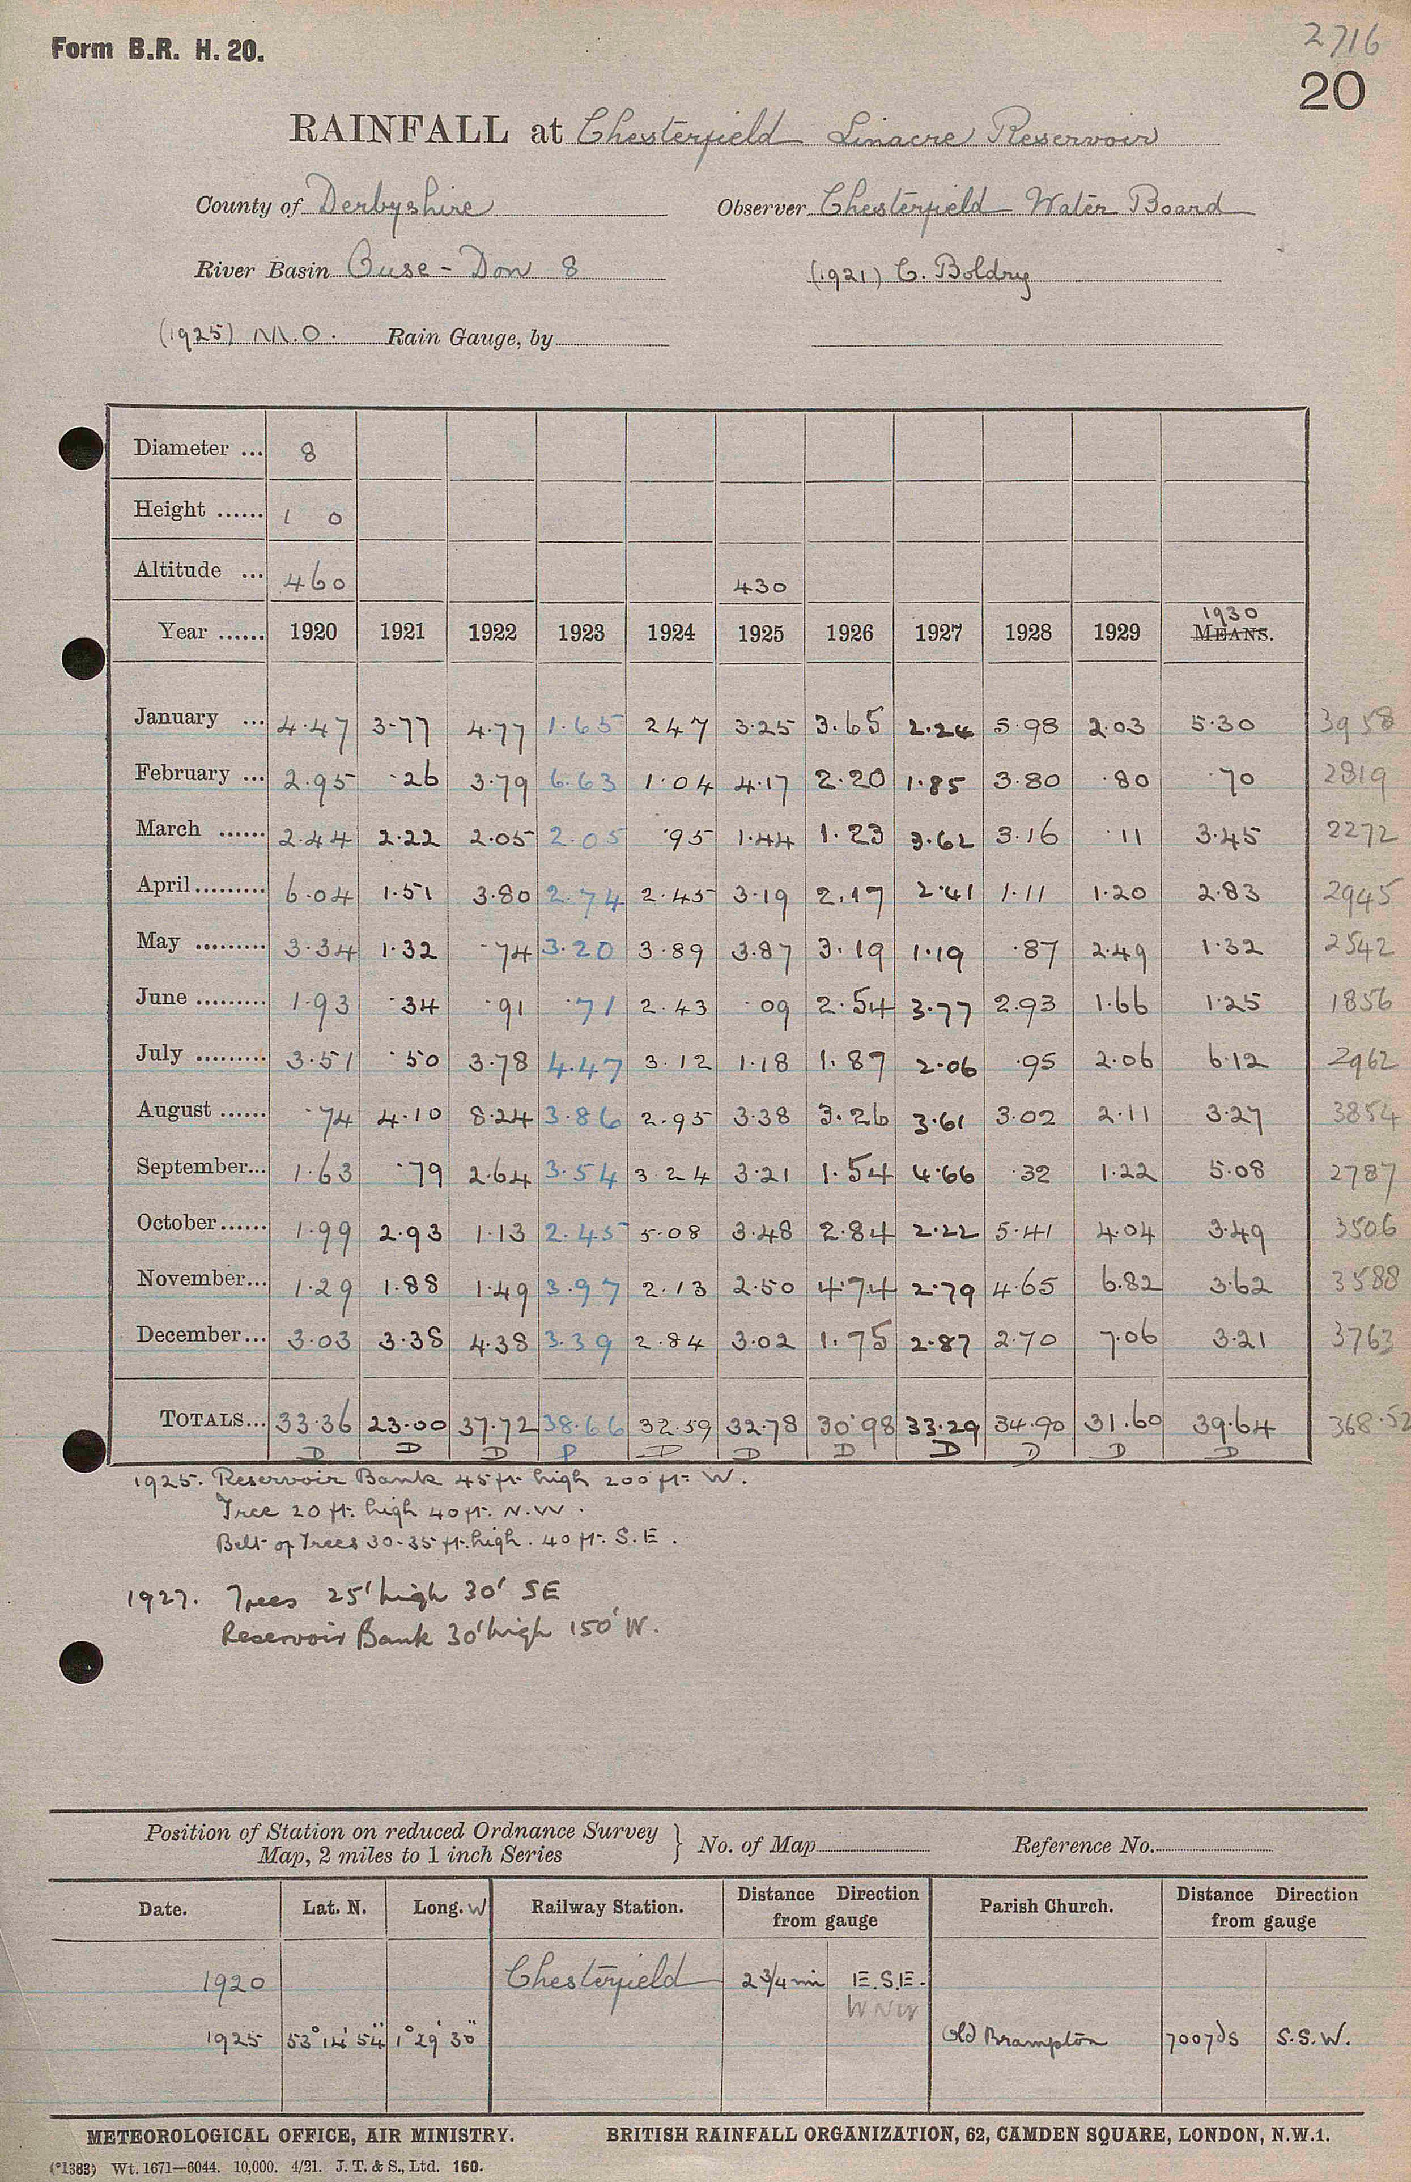 Form B.R. H. 20.
2716
20
RAINFALL at Chesterfield Linacre Reservoir
County of Derbyshire Observer Chesterfield Water Board
River Basin Ouse - Don 8 (1921) C. Boldry
(1925) M.O. Rain Gauge, by
Diameter ... 8
Height ...... 1 0
Altitude ... 460 430
Year ...... 1920 1921 1922 1923 1924 1925 1926 1927 1928 1929 1930 MEANS.
January ... 4.47 3.77 4.77 1.65 2.47 3.25 3.65 2.24 5.98 2.03 5.30 3958
February ... 2.95 .26 3.79 6.63 1.04 4.17 2.20 1.85 3.80 .80 .70 2819
March ...... 2.44 2.22 2.05 2.05 .95 1.44 1.23 3.62 3.16 .11 3.45 2272
April ......... 6.04 1.51 3.80 2.74 2.45 3.19 2.17 2.41 1.11 1.20 2.83 2945
May ......... 3.34 1.32 .74 3.20 3.89 3.87 3.19 1.19 .87 2.49 1.32 2542
June ......... 1.93 .34 .91 .71 2.43 .09 2.54 3.77 2.93 1.66 1.25 1856
July ......... 3.51 .50 3.78 4.47 3.12 1.18 1.87 2.06 .95 2.06 6.12 2962
August ...... .74 4.10 8.24 3.86 2.95 3.38 3.26 3.61 3.02 2.11 3.27 3854
September... 1.63 .79 2.64 3.54 3.24 3.21 1.54 4.66 .32 1.22 5.08 2787
October ...... 1.99 2.93 1.13 2.45 5.08 3.48 2.84 2.22 5.41 4.04 3.49 3506
November... 1.29 1.88 1.49 3.97 2.13 2.50 4.74 2.79 4.65 6.82 3.62 3588
December... 3.03 3.38 4.38 3.39 2.84 3.02 1.75 2.87 2.70 7.06 3.21 3763
TOTALS... 33.36 23.00 37.72 38.66 32.59 32.78 30.98 33.29 34.90 31.60 39.64 368.52
D D D P D D D D D D D
1925. Reservoir Bank 45 ft. high 200 ft. W.
Tree 20 ft. high 40 ft. N.W.
Belt of Trees 30-35 ft. high. 40 ft. S.E.
1927. Trees 25' high 30' SE
Reservoir Bank 30' high 150' W.
Position of Station on reduced Ordnance Survey Map, 2 miles to 1 inch Series } No. of Map Reference No.
Date. Lat. N. Long. W Railway Station. Distance Direction from gauge Parish Church. Distance Direction from gauge
1920 Chesterfield 2 3/4 mi E.S.E.
WNW
1925 53° 14' 54" 1° 29' 30" Old Brampton 700 yds S.S.W.
METEOROLOGICAL OFFICE, AIR MINISTRY. BRITISH RAINFALL ORGANIZATION, 62, CAMDEN SQUARE, LONDON, N.W.1.
(*1383) Wt. 1671—6044. 10,000. 4/21. J. T. & S., Ltd. 160.